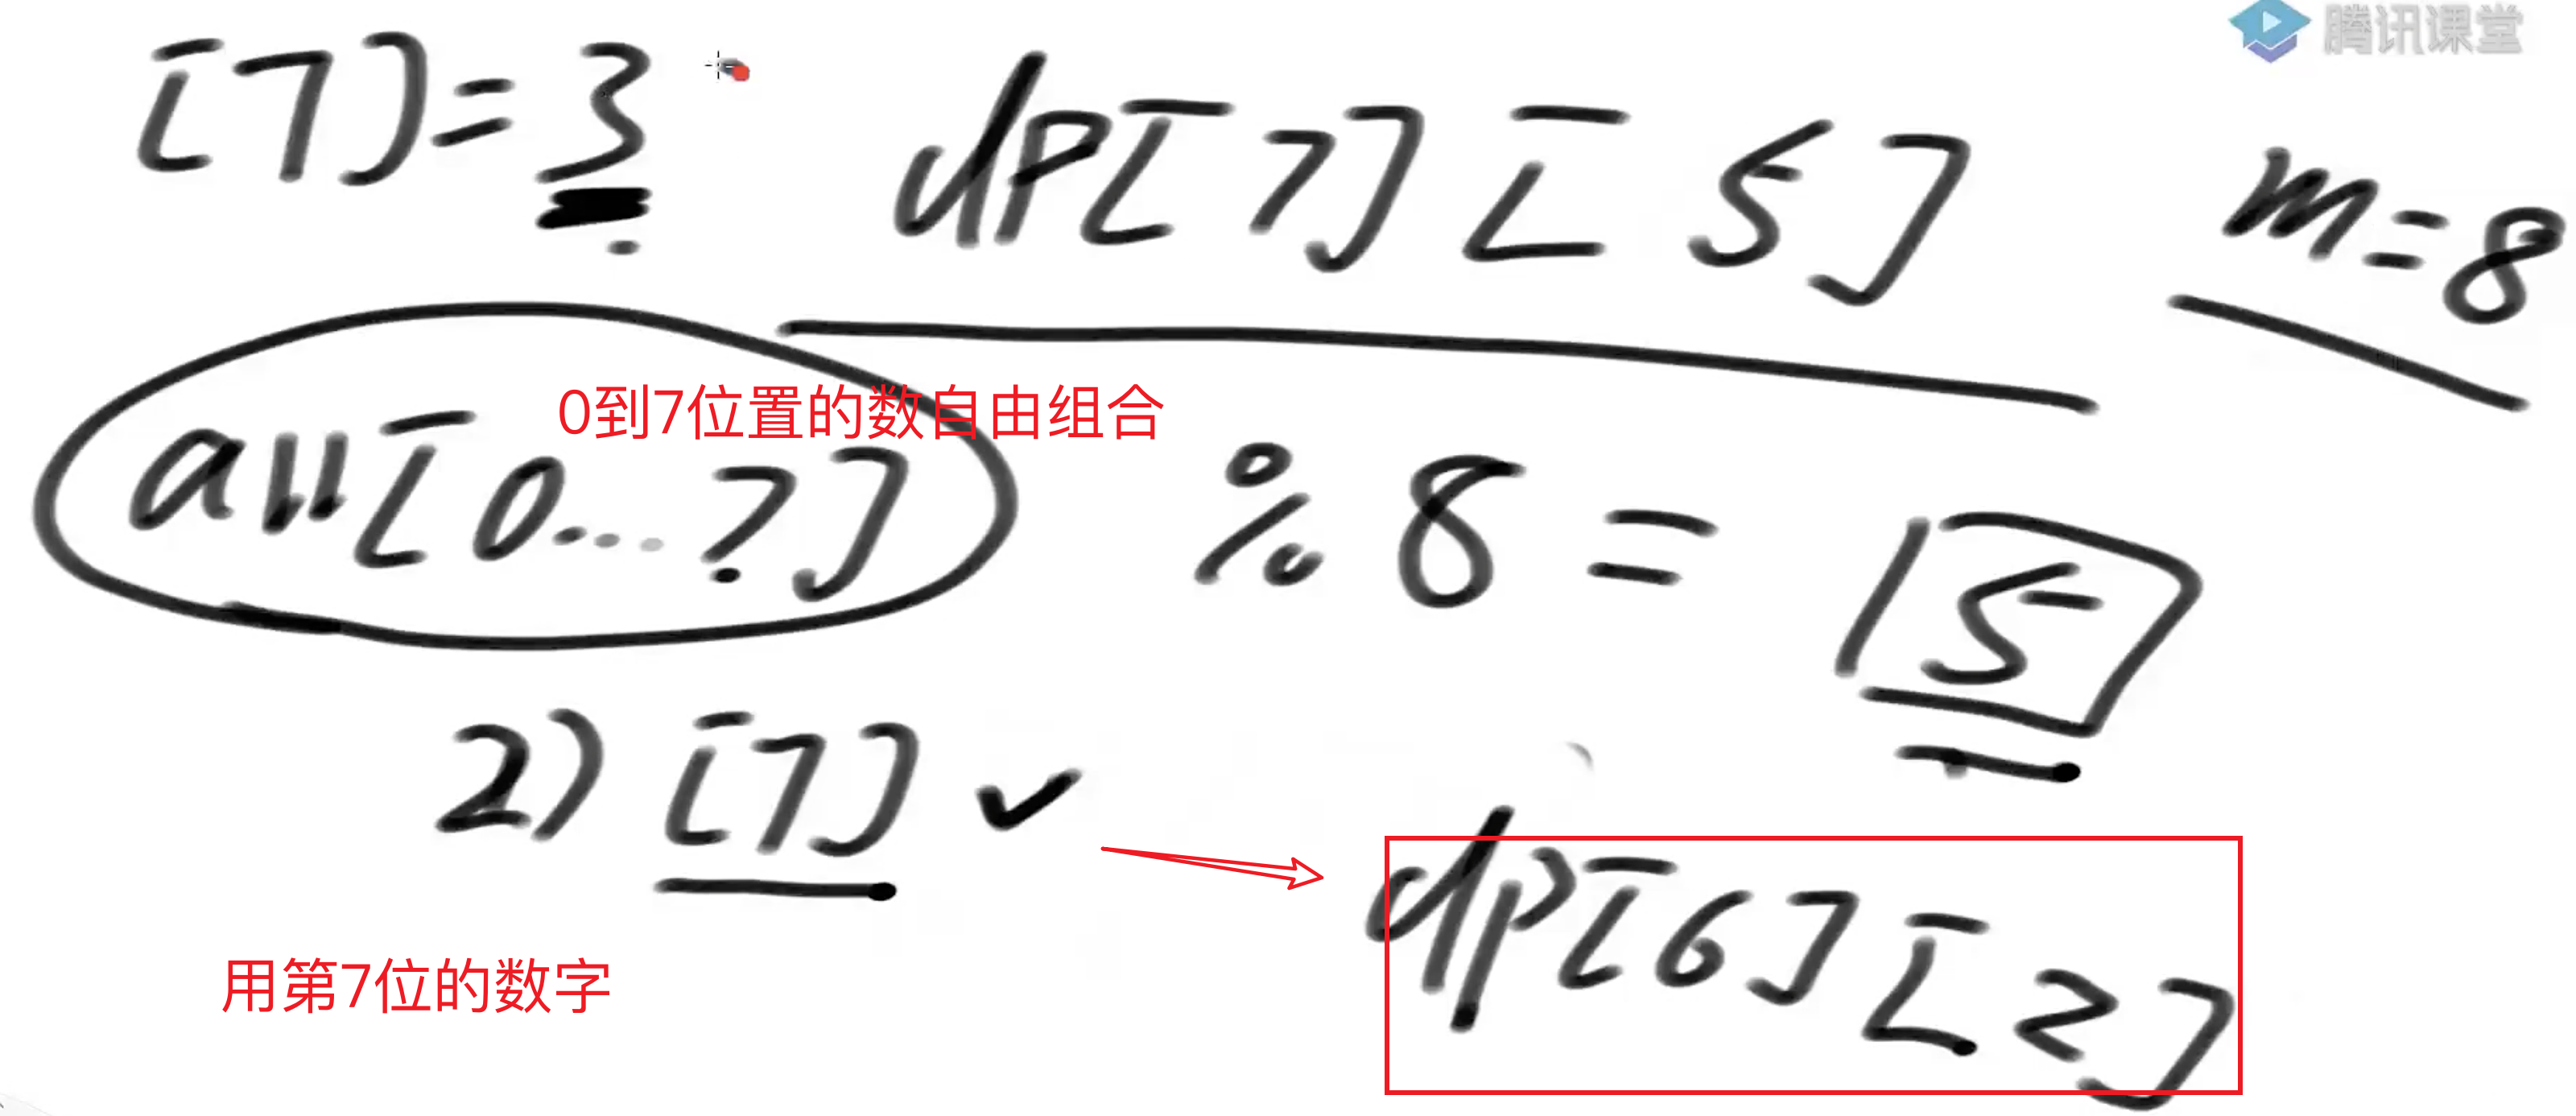 腾讯课堂
[7]=3
dp[7][5]
m=8
0到7位置的数自由组合
all[0...7] % 8 = 5
2) [7] ✓
dp[6][2]
用第7位的数字